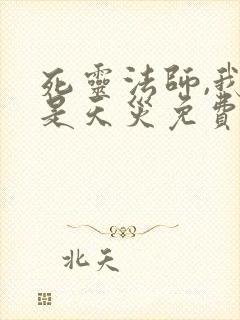 死靈法師,我
是天災免費
北天